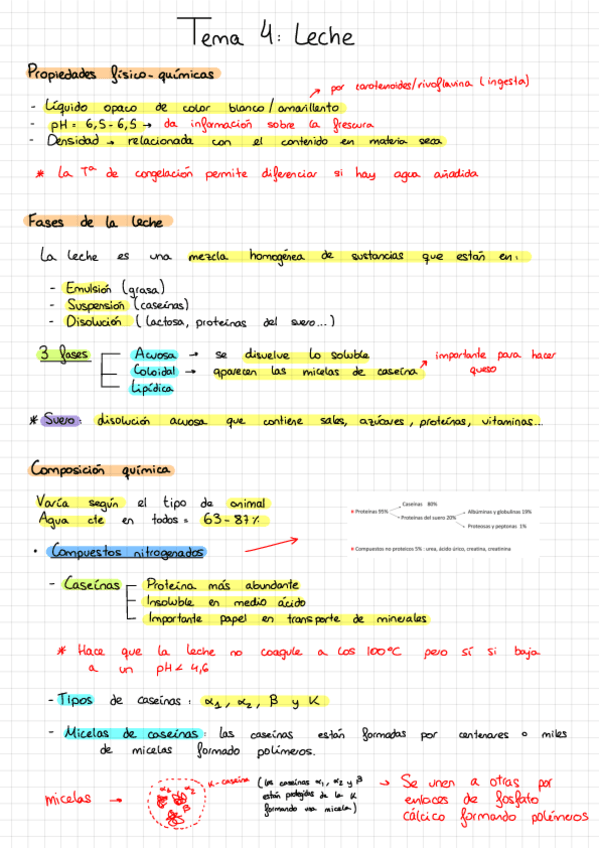 Tema 4: Leche
Propiedades físico-químicas
por carotenoides/rivoflavina (ingesta)
- Líquido opaco de color blanco/amarillento
- pH = 6,5-6,5 → da información sobre la frescura
- Densidad → relacionada con el contenido en materia seca
* La Tª de congelación permite diferenciar si hay agua añadida
Fases de la leche
La leche es una mezcla homogénea de sustancias que están en:
- Emulsión (grasa)
- Suspensión (caseínas)
- Disolución (lactosa, proteínas del suero...)
3 fases
Acuosa → se disuelve lo soluble
Coloidal → aparecen las micelas de caseína
Lipídica
importante para hacer
queso
* Suero: disolución acuosa que contiene sales, azúcares, proteínas, vitaminas...
Composición química
Varía según el tipo de animal
Agua cte en todos = 63-87%
Caseínas 80%
Proteínas 95%
Proteínas del suero 20%
Albúminas y globulinas 19%
Proteosas y peptonas 1%
Compuestos no proteicos 5% : urea, ácido úrico, creatina, creatinina
• Compuestos nitrogenados
- Caseínas
Proteína más abundante
Insoluble en medio ácido
Importante papel en transporte de minerales
* Hace que la leche no coagule a los 100ºC pero sí si baja
a un pH < 4,6
- Tipos de caseínas: α1, α2, β y K
- Micelas de caseínas: las caseínas están formadas por centenares o miles
de micelas formado polímeros.
micelas →
α1
α2
β
K-caseína
(las caseínas α1, α2 y β
están protegidas de la K
formando una micela)
→ Se unen a otras por
enlaces de fosfato
cálcico formando polímeros